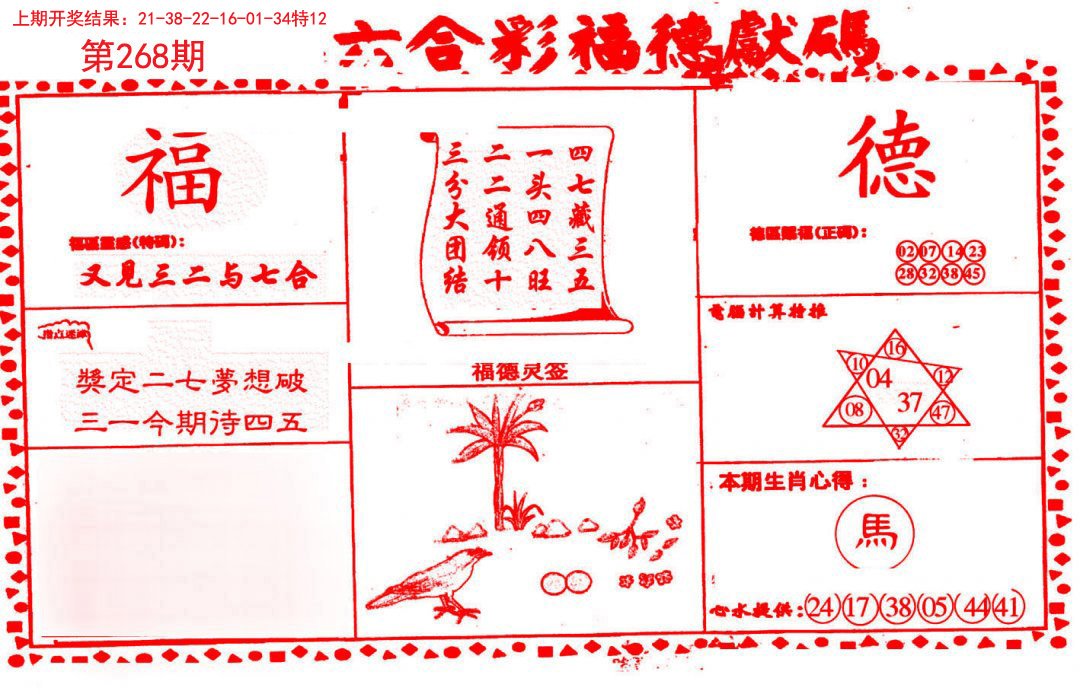 上期开奖结果：21-38-22-16-01-34特12
第268期
六合彩福德獻碼
福
福區靈感(特碼)：
又見三二与七合
指点迷津
獎定二七夢想破
三一今期待四五
四七藏三五
一头四八旺
二二通领十
三分大团结
福德灵签
德
德區賜福(正碼)：
02 07 14 23
28 32 38 45
電腦計算特推
16
10 04 12
08 37 47
32
本期生肖心得：
馬
心水提供：24 17 38 05 44 41